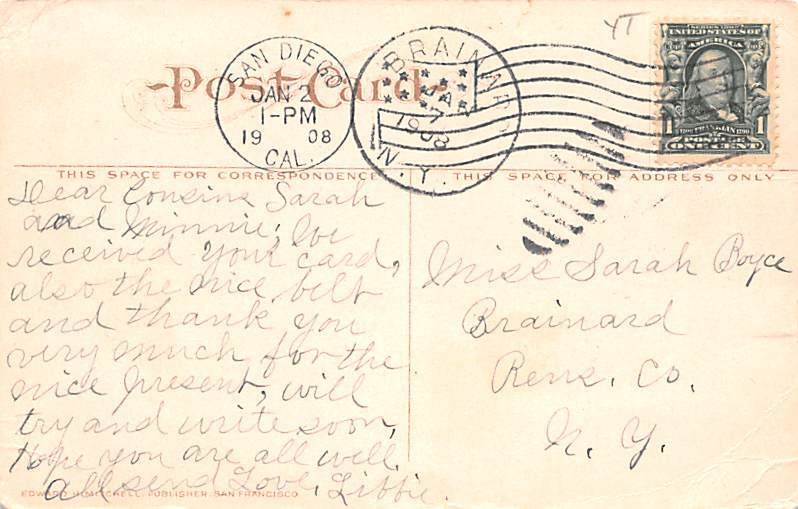 YT
SERIES 1902
UNITED STATES OF
AMERICA
1 FRANKLIN 1
ONE CENT
Post Card
SAN DIEGO
JAN 2
1-PM
1908
CAL.
BRAINARD
JAN
7
1908
N.Y.
THIS SPACE FOR CORRESPONDENCE
THIS SPACE FOR ADDRESS ONLY
Dear Cousins Sarah
and Minnie; We
received your card,
also the nice belt
and thank you
very much for the
nice present, will
try and write soon,
Hope you are all well.
All send Love, Libbie.
Miss Sarah Boyce
Brainard
Rens. Co.
N. Y.
EDWARD H. MITCHELL, PUBLISHER, SAN FRANCISCO